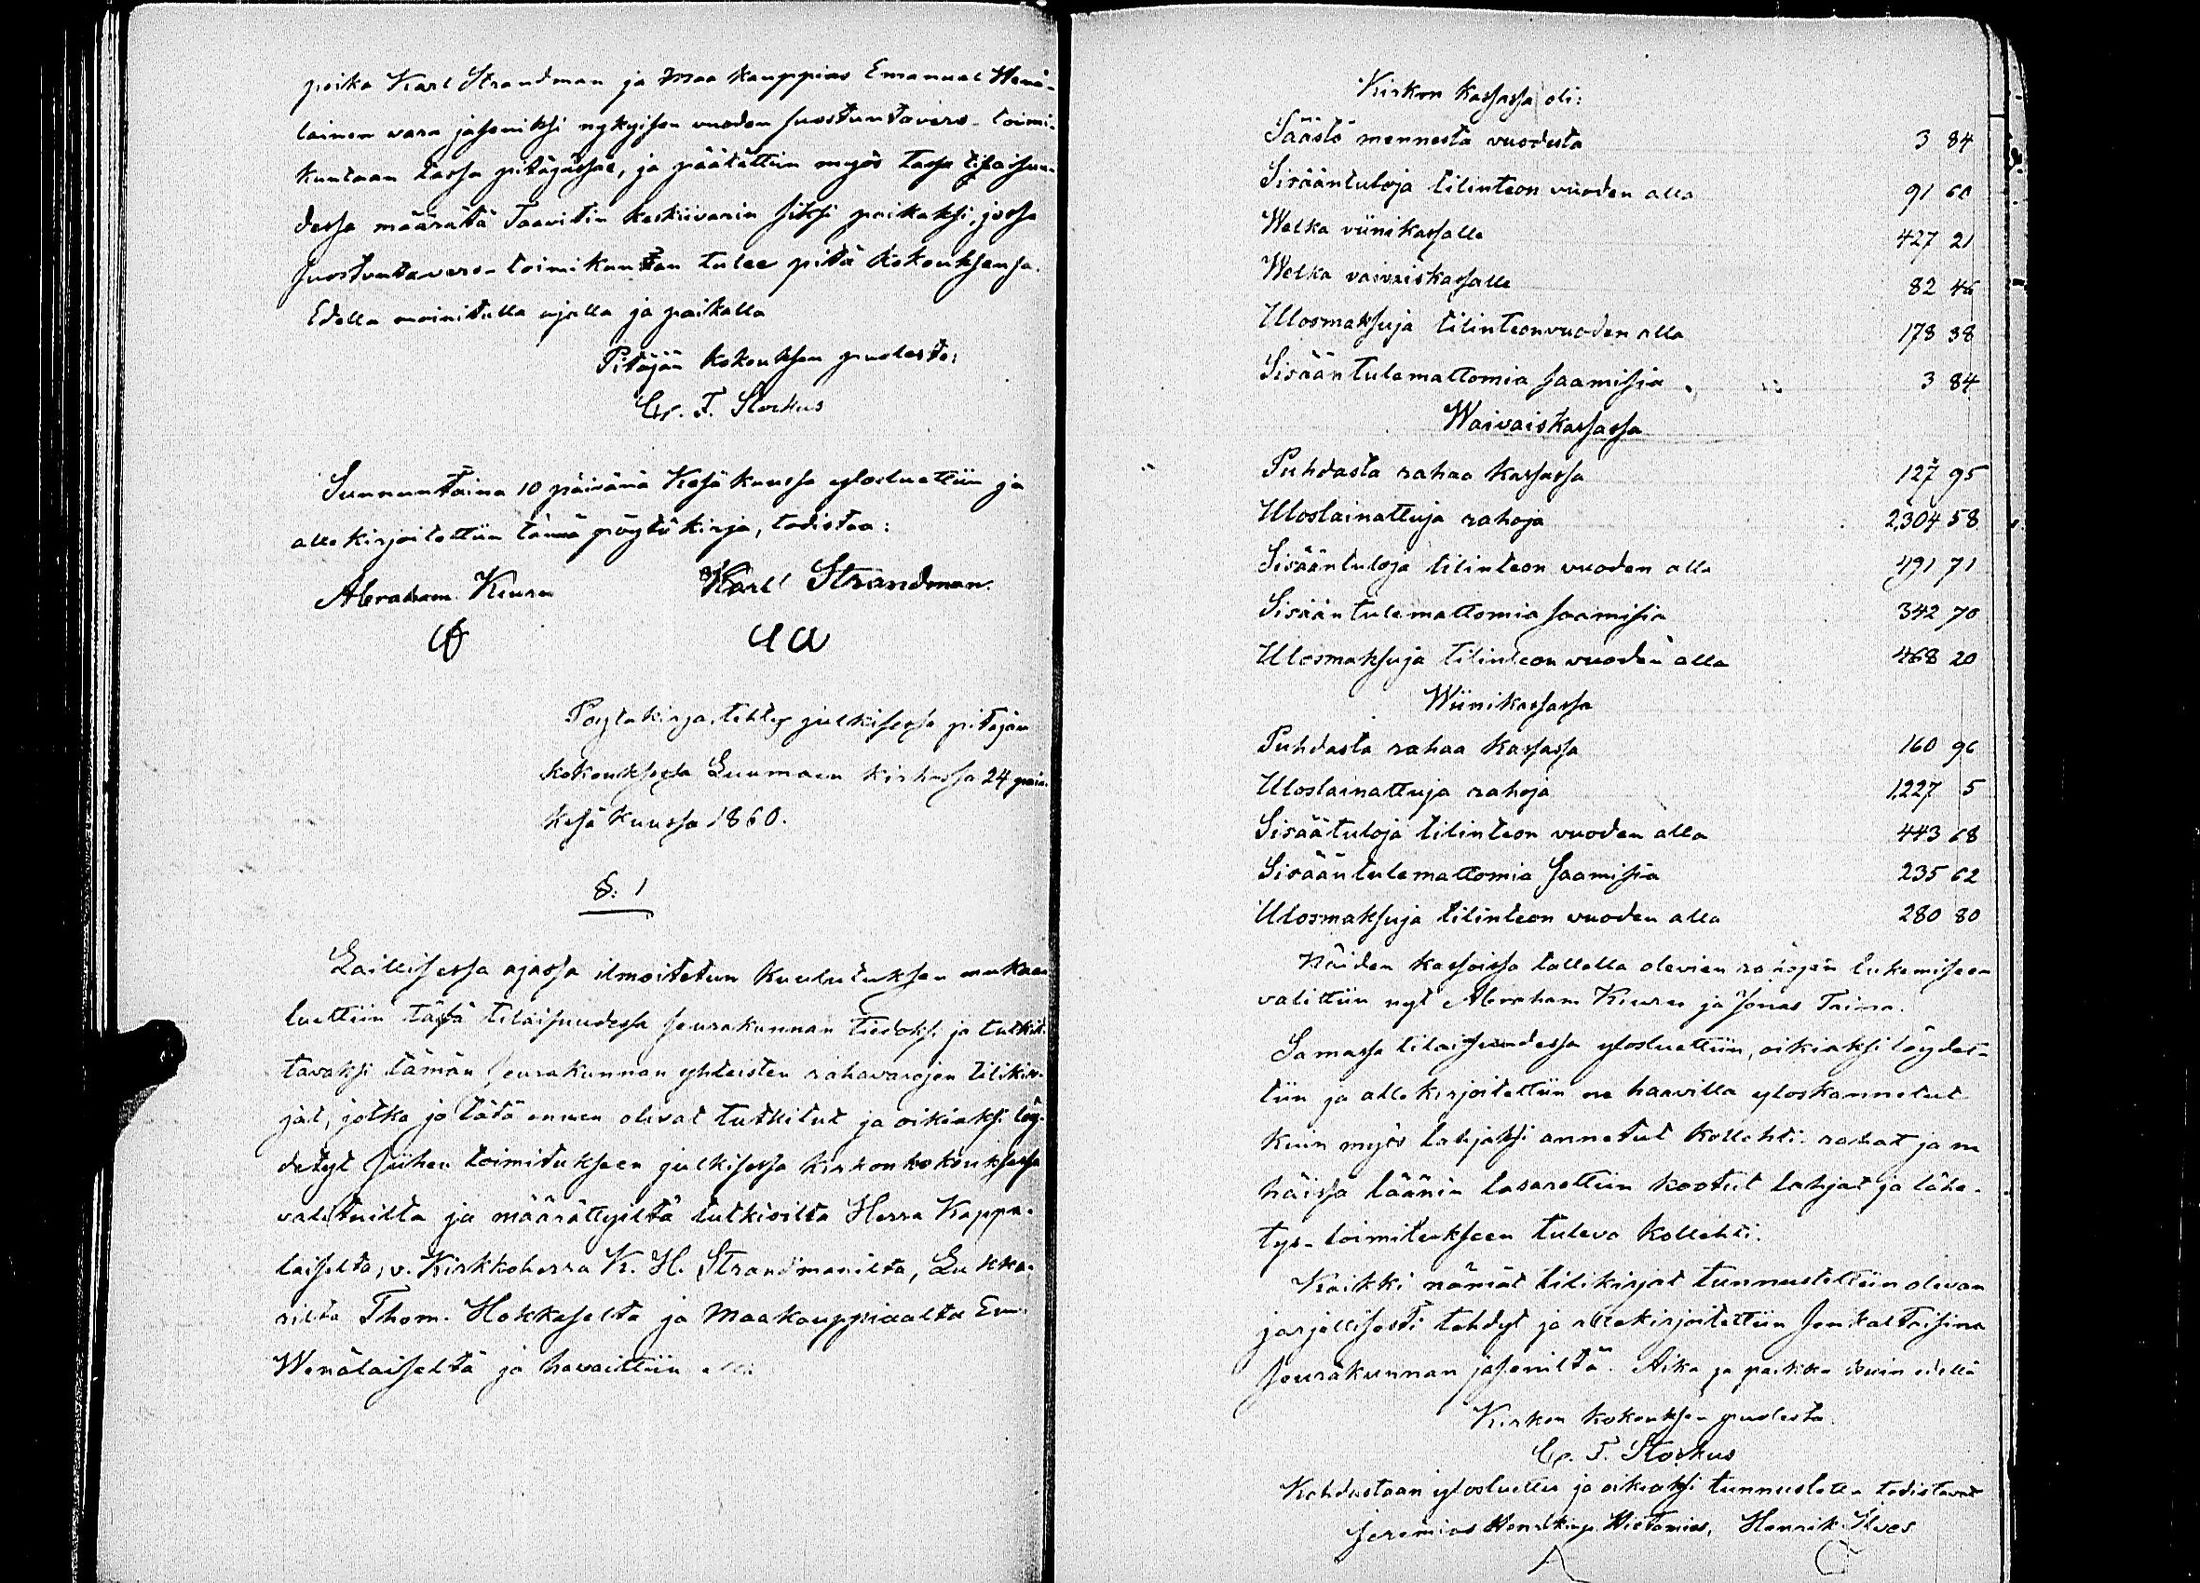 poika Karl Strandman ja Maa kauppias Emanuel Wenä-
läinen vara jäseniksi nykyisen vuoden suostuntavero- toimi-
kuntaan tässä pitäjässae, ja päätättiin myös tässa tilaisuu-
dessa määrätä Taavitin keskiivarin siksi paikaksi, jossa
suostuntavero- toimikuntan tulee pitä kokouksensa.
Edella mainitulla ajalla ja paikalla
Pitäjän kokouksen puolesta:
C. F. Storkus
Sunnuntaina 10 päivänä Kesäkuussa ylosluettiin ja
alle kirjoitettiin tämä pöytäkirja, todistaa:
Abraham Kiuru Karl Strandman.
Poytakirja, tehty julkisessa pitäjän
kokouksessa Luumaen kirkossa 24 päiv.
kesäkuussa 1860.
§. 1
Laillisessa ajassa ilmoitetun kuulutuksen mukaan
luettiin täsä tiläisuudessa seurakunnan tiedoksi ja tutkit-
tavaksi tämän seurakunnan yhteisten rahavarojen tilikir-
jat, jotka jo tätä ennen olivat tutkitut ja oikiaksi löy-
detyt siihen toimitukseen julkisessa kirkonkokouksessa
valituilta ja määrättyiltä tutkioilta Herra Kappa-
laiselta, v. Kirkkoherra K. H. Strandmanilta, Lukka-
rilta Thom. Hokkaselta ja Maakauppiaalta Em.
Wenälaiseltä ja havaittiin
Kirkon kassassa oli:
Säästö mennestä vuodesta 3 84
Sisääntuloja tilinteon vuoden alla 91 60
Welka viinikassalle 427 21
Welka vaivaiskassalle 82 46
Ulosmaksuja tilinteonvuoden alla 178 38
Sisääntulemattomia saamisia 3 84
Waivaiskassassa
Puhdasta rahaa kassassa 127 95
Uloslainattuja rahoja 2,304 58
Sisääntuloja tilinteon vuoden alla 491 71
Sisääntulemattomia saamisia 342 70
Ulosmaksuja tilinteon vuoden alla 468 20
Wiinikassassa
Puhdasta rahaa kassassa 160 96
Uloslainattuja rahoja 1,227 5
Sisäätuloja tilinteon vuoden alla 443 68
Sisääntulemattomia saamisia 235 62
Ulosmaksuja tilinteon vuoden alla 280 80
Näiden kassoissa tallella olevien rahojen lukemiseen
valittiin nyt Abraham Kiuru ja Jonas Taina.
Samassa tilaisuudessa ylosluettiin, oikiaksi löydet-
tiin ja alle kirjoitettiin ne haavilla yloskannetut
kuin myös lahjaksi annetut kollehti- rahat ja ne
häissä läänin lasarettiin kootut lahjat ja lähe-
tys- toimitukseen tuleva kollehti.
Kaikki nämät tilikirjat tunnustettiin olevan
jarjellisesti tehdyt ja allekirjoitettiin senkaltaisina
seurakunnan jäseniltä. Aika ja paikka kuin edellä
Kirkon kokouksen puolesta.
C. F. Storkus
Kohdastaan ylosluettu ja oikiaksi tunnustettu todistavat
Jeremias Henrikinp. Hietamies, Henrik Ilves